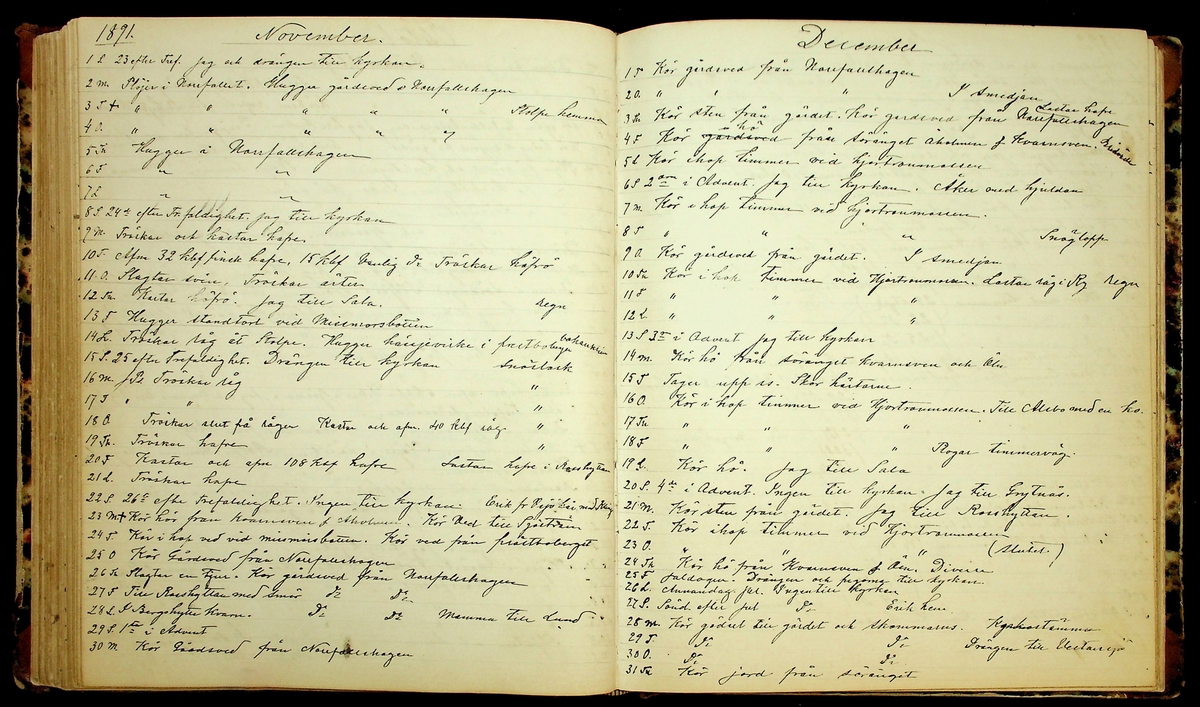 1891. November.
1 S. 23 efter Tref. Jag och drängen till kyrkan.
2 M. Plöjer i Norrfallet. Hugger gärdsved å Norrfallshagen
3 T + " " " " " Stolpe hemma
4 O. " " " " "
5 Th Hugger å Norrfallshagen
6 F " "
7 L "
8 S. 24de efter Trefaldighet. Jag till kyrkan
9 M. Tröskar och kastar hafre.
10 T. Afm. 32 kbf finsk hafre, 15 kbf Vanlig do Tröskar höfrö
11 O. Slagtar svin. Tröskar ärter
12 Th. Kastar höfrö. Jag till Sala. regn
13 F Hugger vid Missmorsbotten
14 L. Tröskar råg åt Stolpe. Hugger hässjevirke i
15 S. 25 efter Trefaldighet. Drängen till kyrkan Snöslask
16 M. Tröskar råg "
17 T " " "
18 O. Tröskar slut på rågen Kastar och afm. 40 kbf råg "
19 Th. Tröskar hafre "
20 F Kastar och afm 108 kbf hafre Lastar hafre i Rosshyttan
21 L. Tröskar hafre
22 S. 26te efter Trefaldighet. Ingen till kyrkan. Erik fr
23 M + Kör hö från Kvarnsven Åholmen. Kör Ved till
24 T Kör i hop ved vid missmorsbotten. Kör ved från prästtboberget
25 O Kör Gärdsved från Norrfallshagen
26 Th Slagtar en tjur. Kör gärdsved från Norrfallshagen
27 F Till Rosshyttan med smör do do
28 L Berghytte Kvarn. do do Mamma till Lund
29 S. 1sta i Advent
30 M Kör Gärdsved från Norrfallshagen
December
1 T Kör gärdsved från Norrfallshagen
2 O. " " " I Smedjan
3 Th Kör sten från gärdet. Kör gärdsved från Norrfallshagen Lastar hafre
4 F Kör gärdsved hö från söränget Åholmen Kvarnsven.
5 L Kör ihop timmer ved hjortronmossen
6 S 2dra i Advent. Jag till kyrkan. Åker med hjuldon
7 M Kör i hop timmer vid hjortronmossen.
8 T " " " Snöglopp
9 O. Kör gärdsved från gärdet. I Smedjan
10 Th Kör i hop timmer vid Hjortronmossen. Lastar råg i Ry regn
11 F " " "
12 L " " "
13 S 3dje i Advent Jag till kyrkan
14 M. Kör hö från söränget Kvarnsven och Ön
15 T Tager upp is. Skor hästarne.
16 O. Kör i hop timmer vid Hjortronmossen. Till Alsbo med en ko.
17 Th " " "
18 F " " " Rogar timmerväg.
19 L. Kör hö. Jag till Sala
20 S. 4de i Advent. Ingen till kyrkan. Jag till Grytnäs.
21 M. Kör sten från gärdet. Jag till Rosshyttan.
22 T. Kör ihop timmer vid Hjortronmossen
23 O. " " " (slutet.)
24 Th Kör hö från Kvarnsven Ön.
25 F Juldagen. Drängen och pigorna till kyrkan
26 L. Annandag jul. Ingen till kyrkan
27 S. Sönd. efter jul do Erik hem
28 M. Kör gödsel till gärdet och
29 T. do do Drängen till
30 O. do do
31 Th Kör jord från söränget